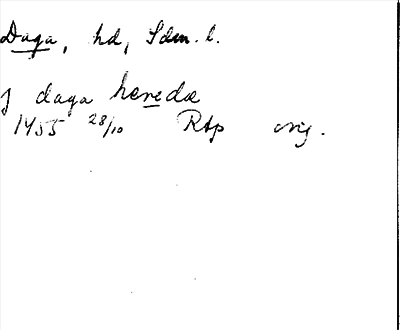 Daga, hd, Sdm. l.
J daga heredæ
1455 28/10 RAp orig.